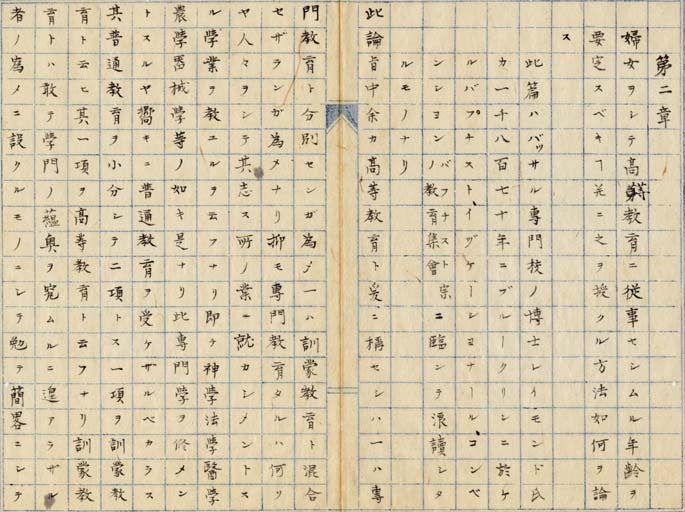 第二章
婦女ヲシテ高等教育ニ従事セシムル年齢ヲ
要定スベキヿ並ニ之ヲ授クル方法如何ヲ論
ス
此篇ハバッサル専門校ノ博士レイモンド氏
カ一千八百七十年ニブルークリンニ於ケ
ルバプチスト、イヅケーシヨナール、コンベ
ンシヨンノ バフチスト宗教育集會 ニ臨ンテ演讀シタ
ルモノナリ
此論旨中余カ高等教育ト爰ニ稱セシハ一ハ專
門教育ト分別センガ為メ一ハ訓蒙教育ト混合
セザランガ為メナリ抑モ専門教育タルハ何リ
ヤ人々ヲシテ其志ス所ノ業ニ就カシメントス
ル學業ヲ教ユルヲ云フナリ即チ神學法學醫學
農學器械學等ノ如キ是ナリ此專門學ヲ修メン
トスルヤ嚮キニ普通教育ヲ受ケザルベカラス
其普通教育ヲ小分シテ二項トス一項ヲ訓蒙教
育ト云ヒ其一項ヲ高等教育ト云フナリ訓蒙教
育トハ敢テ學門ノ蘊奥ヲ究ムルニ遑アラザル
者ノ為メニ設クルモノニシテ勉テ簡畧ニシテ